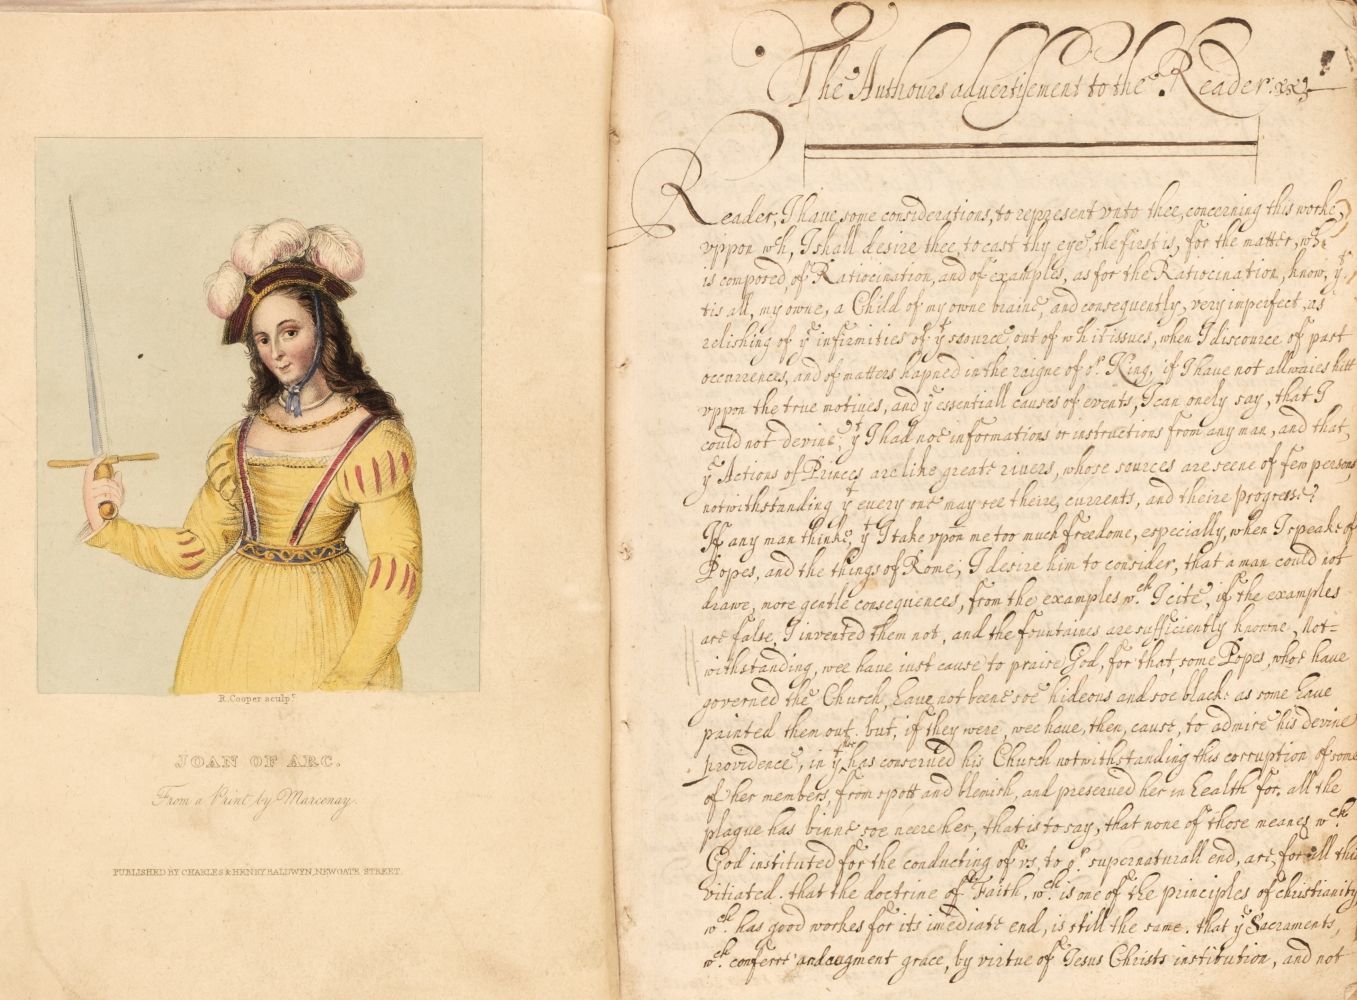 R. Cooper sculpt.
JOAN OF ARC.
From a Print by Marcenay.
PUBLISHED BY CHARLES & HENRY BALDWYN, NEWGATE STREET.
The Authours advertisement to the Reader
Reader, I have some considerations, to represent vnto thee, concerning this worke,
vppon wh, I shall desire thee, to cast thy eye, the first is, for the matter, wh
is composed of Ratiocination, and of examples, as for the Ratiocination, know, yt
tis all, my owne, a Child of my owne braine, and consequently, very imperfect, as
relishing of ye infirmities of yt source, out of wh it issues, when I discource of past
occurrences, and of matters hapned in the raigne of or. King, if I have not allwaies hitt
vppon the true motives, and ye essentiall causes of events, I can onely say, that I
could not devine, yt I had noe informations or instructions from any man, and that,
ye Actions of Princes are like greate rivers, whose sources are seene of few persons,
notwithstanding yt every one may see theire, currents, and theire progresse
If any man thinke, yt I take vpon me too much freedome, especially, when I speake of
Popes, and the things of Rome, I desire him to consider, that a man could not
drawe, more gentle consequences, from the examples wch. I cite, if the examples
are false, I invented them not, and the fountaines are sufficiently knowne, Not=
withstanding, wee have iust cause to praise God, for that some Popes, whoe have
governed the Church, have not beene soe hideous and soe blacke as some have
painted them out. but, if they were, wee have, then, cause, to admire his devine
providence, in yt has conserved his Church notwithstanding this corruption of some
of her members, from spott and blemish, and preserved her in health for, all the
plague has binne soe neere her, that is to say, that none of those meanes wch.
God instituted for the conducting of vs, to or supernaturall end, are, for all this
vitiated. that the doctrine of Faith, wch. is one of the principles of christianity
wch. has good workes for its imediate end, is still the same. that ye Sacraments,
wch. conferre and augment grace, by virtue of Jesus Christs institution, and not